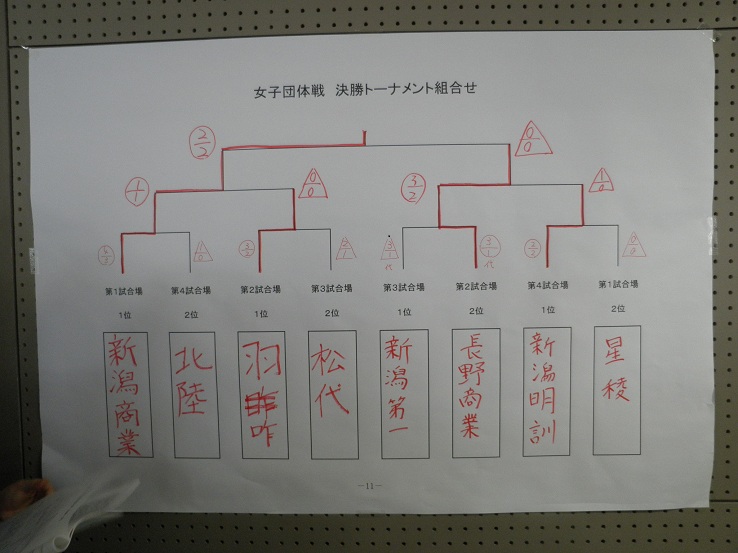 女子団体戦 決勝トーナメント組合せ
2/2 0/0
1/1 0/0 3/2 1/0
3/2 2/1 3/1代 3/1代
第1試合場 第4試合場 第2試合場 第3試合場 第3試合場 第2試合場 第4試合場 第1試合場
1位 2位 1位 2位 1位 2位 1位 2位
新潟商業
北陸
羽咋
松代
新潟第一
長野商業
新潟明訓
星稜
—11—